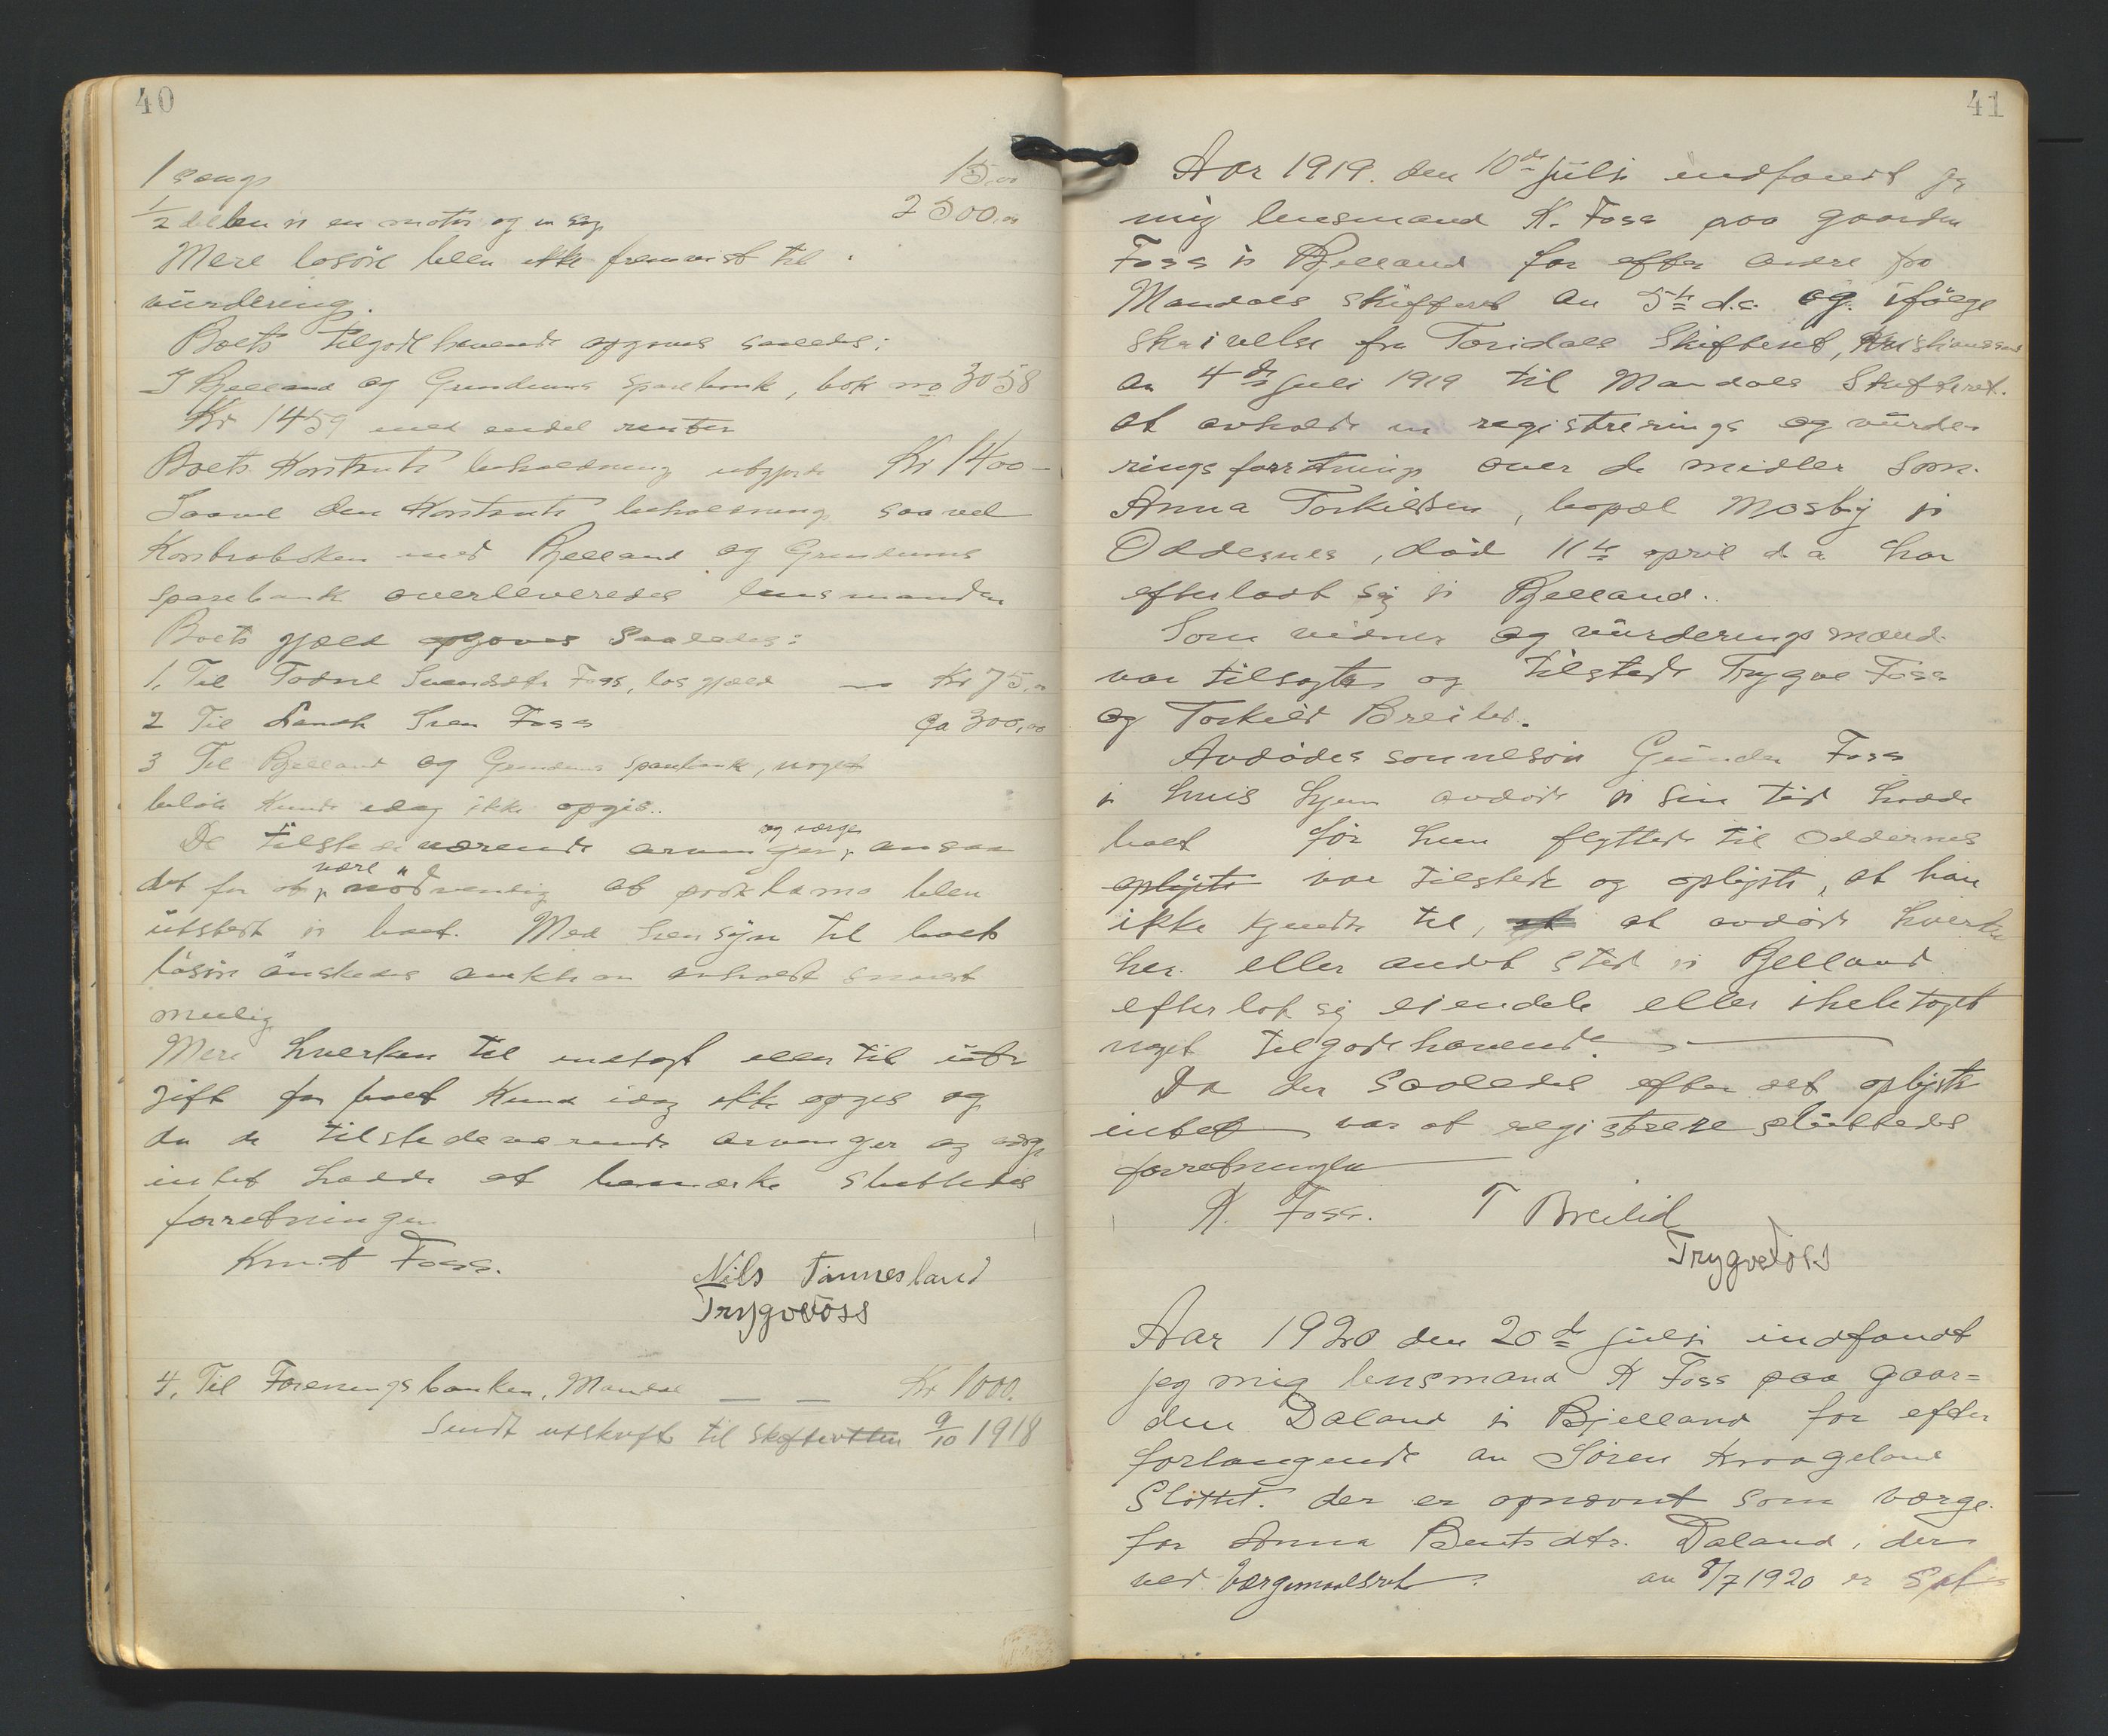 40
1 seng 15,00
1/2 delen i en motor og en sag 2500,00
Mere løsøre blev ikke fremvist til
vurdering.
Boets tilgodehavende opgaves saaledes:
I Bjelland og Grindums sparebank, bok no 3058
Kr 1459 med endel renter
Boets Kontante beholdning utgjorde Kr 1400-
Saavel den Kontante beholdning saavel
Kontraboken med Bjelland og Grindums
sparebank overleveredes lensmanden
Boets gjæld opgaves saaledes:
1. Til Todne Svendsdtr Foss, løs gjæld — Kr 75,00
2 Til Sven Foss Ca 300,00
3 Til Bjelland og Grindums sparebank, noget
beløb Kunde idag ikke opgis..
og værge
De tilstedeværende arvinger, ansaa
være
det for at nødvendig at proklama blev
utstedt i boet. Med hensyn til boets
løsøre ønskedes auktion avholdt snarest
mulig
Mere hverken til indtægt eller til ut-
gift for boet Kunde idag ikke opgis og
da de tilstedeværende arvinger og værge
intet hadde at bemærke sluttedes
forretningen
Knut Foss.
Nils Tånnesland
Trygve Foss
4. Til Foreningsbanken, Mandal — — Kr 1000.
Sendt utskrift til skifteretten 9/10 1918
41
Aar 1919. den 10de juli indfandt jeg
mig lensmand K. Foss paa gaarden
Foss i Bjelland for efter ordre fra
Mandals skifteret av 5te d.s. og ifølge
skrivelse fra Toridals Skifteret, Kristianssand
av 4de juli 1919 til Mandals Skifteret.
at avholde en registrerings og vurde-
ringsforretning over de midler som
Anna Torkildsen, bopæl Mosby i
Oddernes, død 11te april d.a. har
efterladt sig i Bjelland.
Som vidner og vurderingsmænd
var tilsagte og tilstede Trygve Foss
og Torkild Breilid.
Avdødes sønnesøn Gunder Foss
i hvis hjem avdøde i sin tid hadde
boet før hun flyttede til Oddernes
oplyste var tilstede og oplyste, at han
ikke kjendte til, at at avdøde hverken
her eller andet sted i Bjelland
efterlot sig eiendele eller iheletaget
noget tilgodehavende.
Da der saaledes efter det oplyste
intet var at registrere sluttedes
forretningen
K. Foss. T Breilid
Trygve Foss
Aar 1920 den 20de juli indfandt
jeg mig lensmand K Foss paa gaar=
den Daland i Bjelland for efter
forlangende av Søren Kraageland
Slottet. der er opnævnt som værge
for Anna Bentsdtr. Daland, der
ved Værgemaalsret av 8/7 1920 er sat